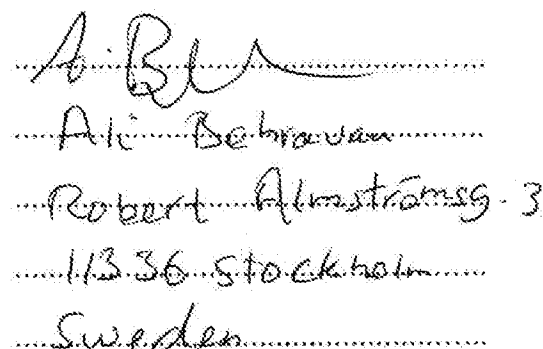 A. B
Ali Behravan
Robert Almströmsg. 3
113 36 Stockholm
Sweden